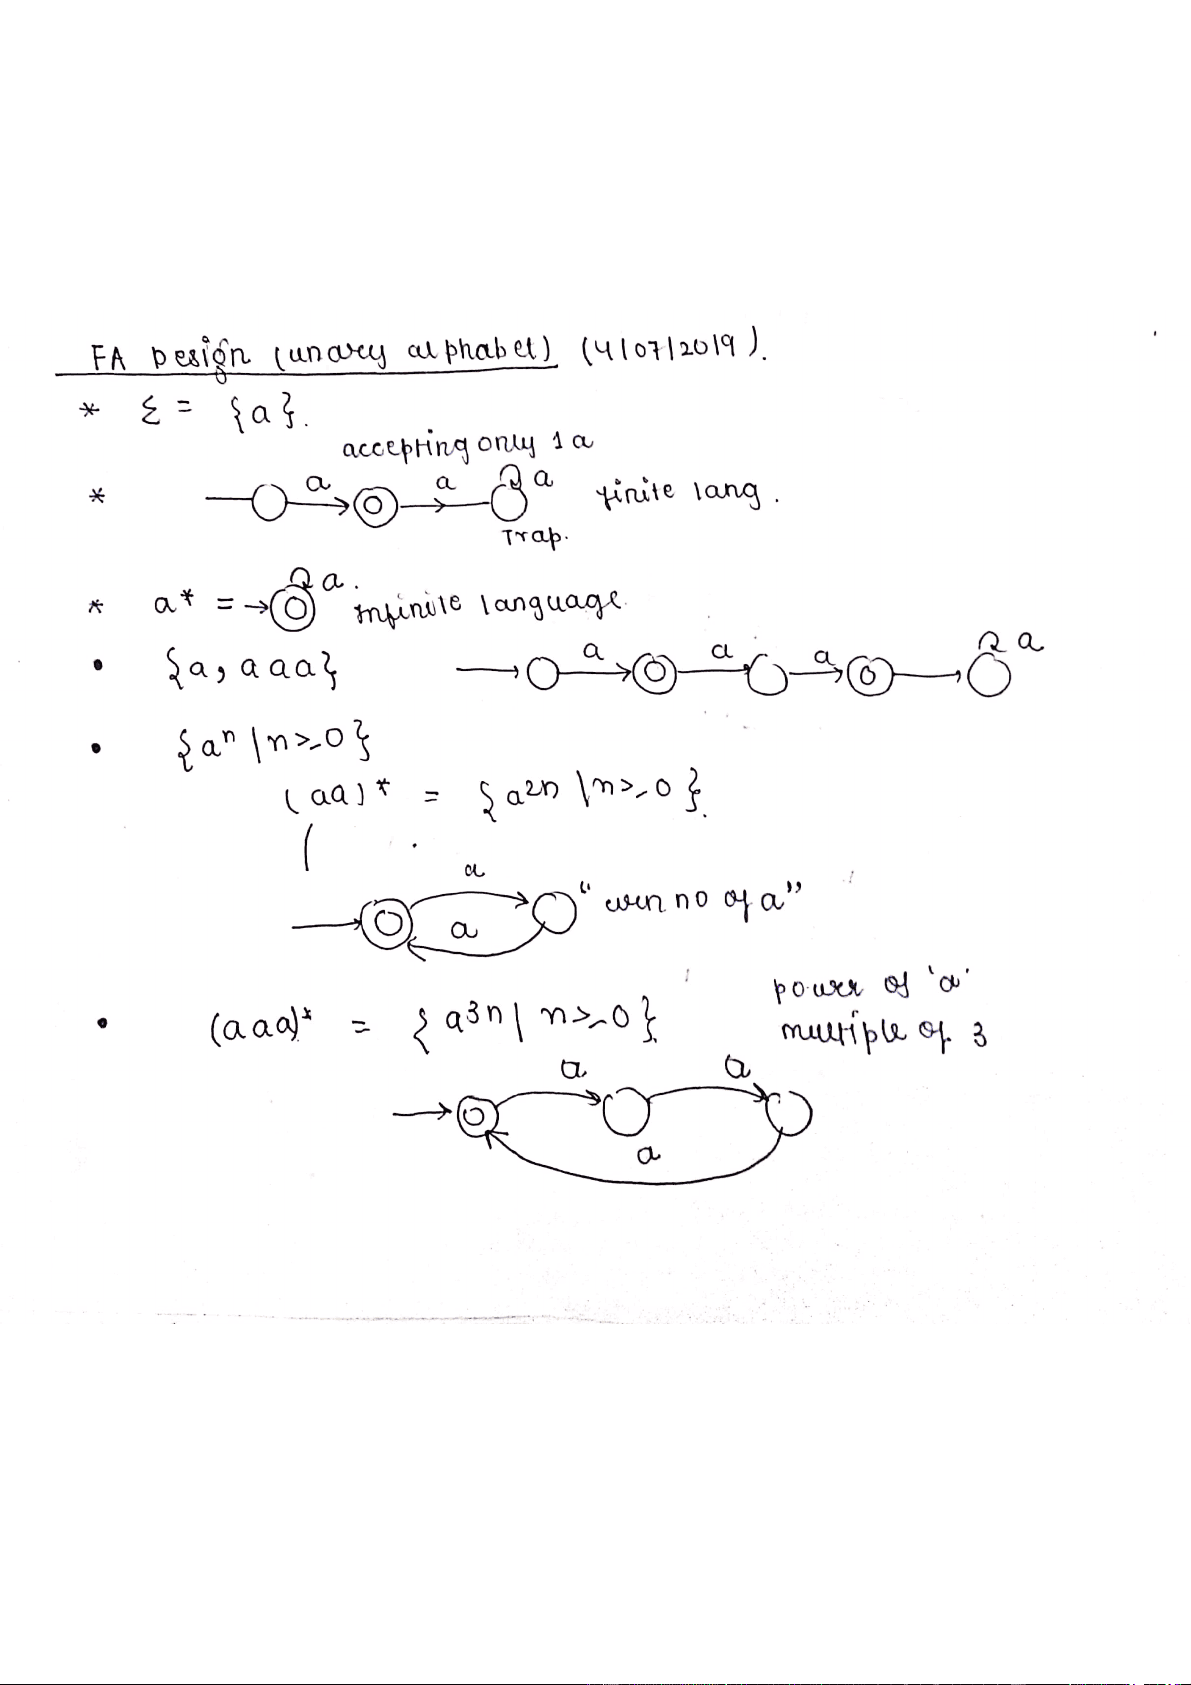 FA Design (unary alphabet) (4/07/2019).
* Σ = {a}.
accepting only 1 a
* a a a finite lang.
Trap.
* a* = a. infinite language.
• {a, aaa} a a a a
• {aⁿ | n>=0}
(aa)* = {a²ⁿ | n>=0}.
(
a
"even no of a"
a
power of 'a'
• (aaa)* = {a³ⁿ | n>=0}. multiple of 3
a a
a